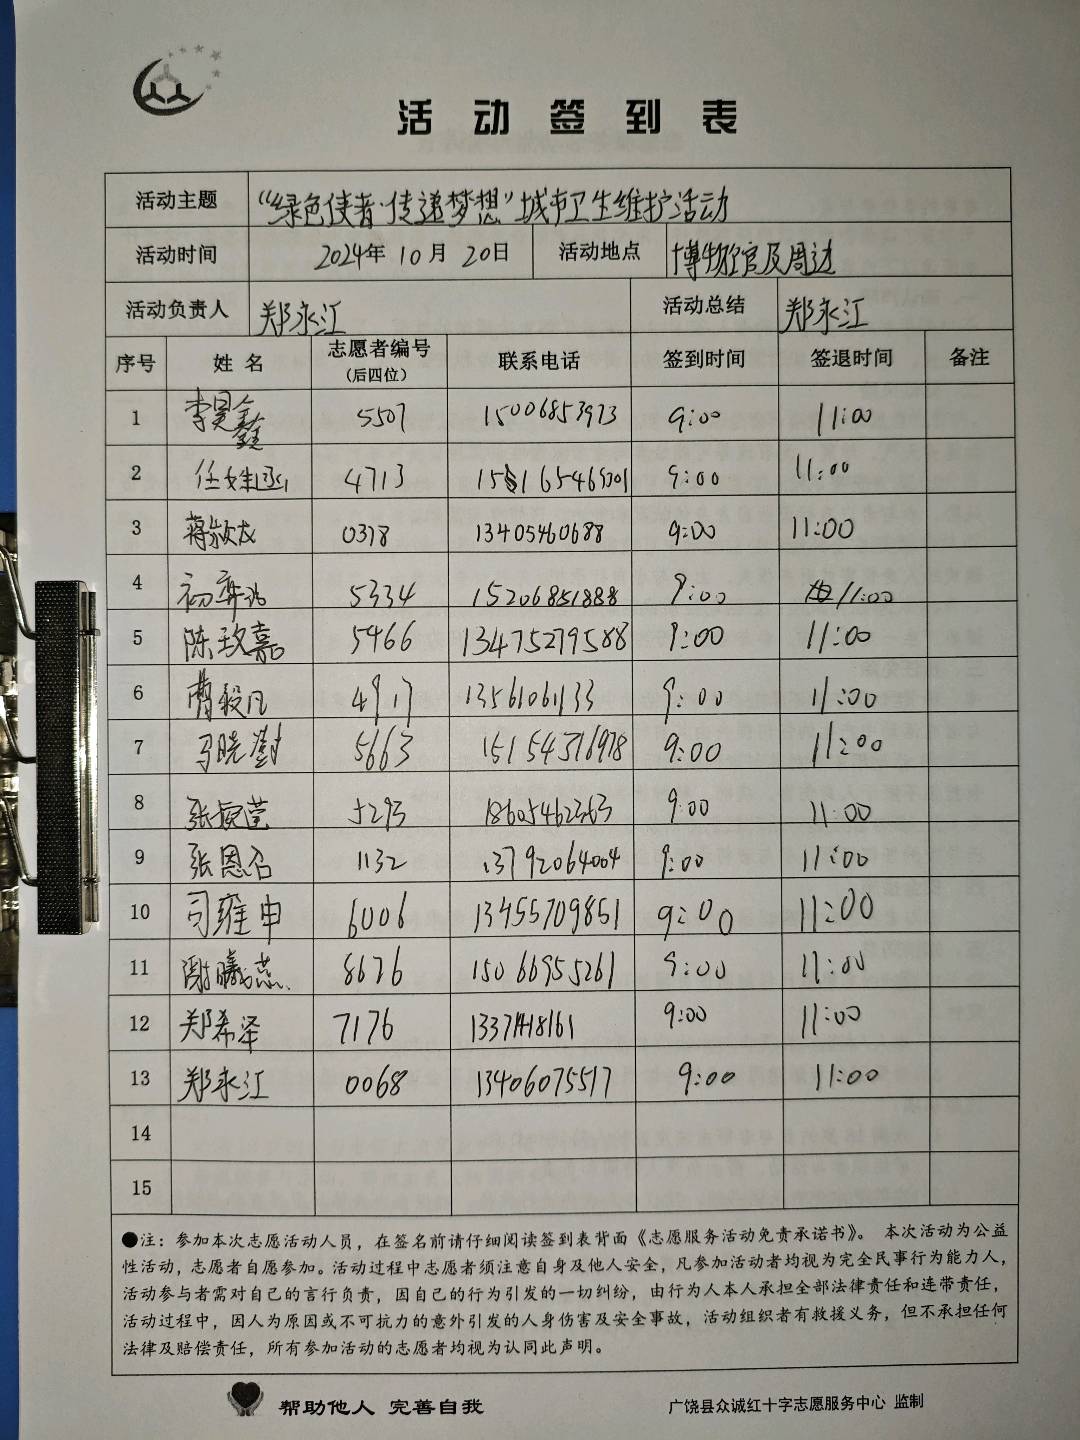 活动签到表
活动主题 “绿色使者·传递梦想”城市卫生维护活动
活动时间 2024年 10月 20日 活动地点 博物馆及周边
活动负责人 郑永江 活动总结 郑永江
序号 姓名 志愿者编号 (后四位) 联系电话 签到时间 签退时间 备注
1 李昊鑫 5507 15006853973 9:00 11:00
2 4713 9:00 11:00
3 0378 13405460688 9:00 11:00
4 5334 15206851888 9:00 11:00
5 陈玫嘉 5466 13475279588 9:00 11:00
6 4917 13561061133 9:00 11:00
7 马晓澍 5663 15154316978 9:00 11:00
8 5293 18605462363 9:00 11:00
9 张恩召 1132 13792064004 9:00 11:00
10 司雅申 6006 13455709851 9:00 11:00
11 谢曦蕊 8676 15066955261 9:00 11:00
12 郑希泽 7176 9:00 11:00
13 郑永江 0068 13406075517 9:00 11:00
14
15
●注：参加本次志愿活动人员，在签名前请仔细阅读签到表背面《志愿服务活动免责承诺书》。 本次活动为公益
性活动，志愿者自愿参加。活动过程中志愿者须注意自身及他人安全，凡参加活动者均视为完全民事行为能力人，
活动参与者需对自己的言行负责，因自己的行为引发的一切纠纷，由行为人本人承担全部法律责任和连带责任，
活动过程中，因人为原因或不可抗力的意外引发的人身伤害及安全事故，活动组织者有救援义务，但不承担任何
法律及赔偿责任，所有参加活动的志愿者均视为认同此声明。
帮助他人 完善自我
广饶县众诚红十字志愿服务中心 监制